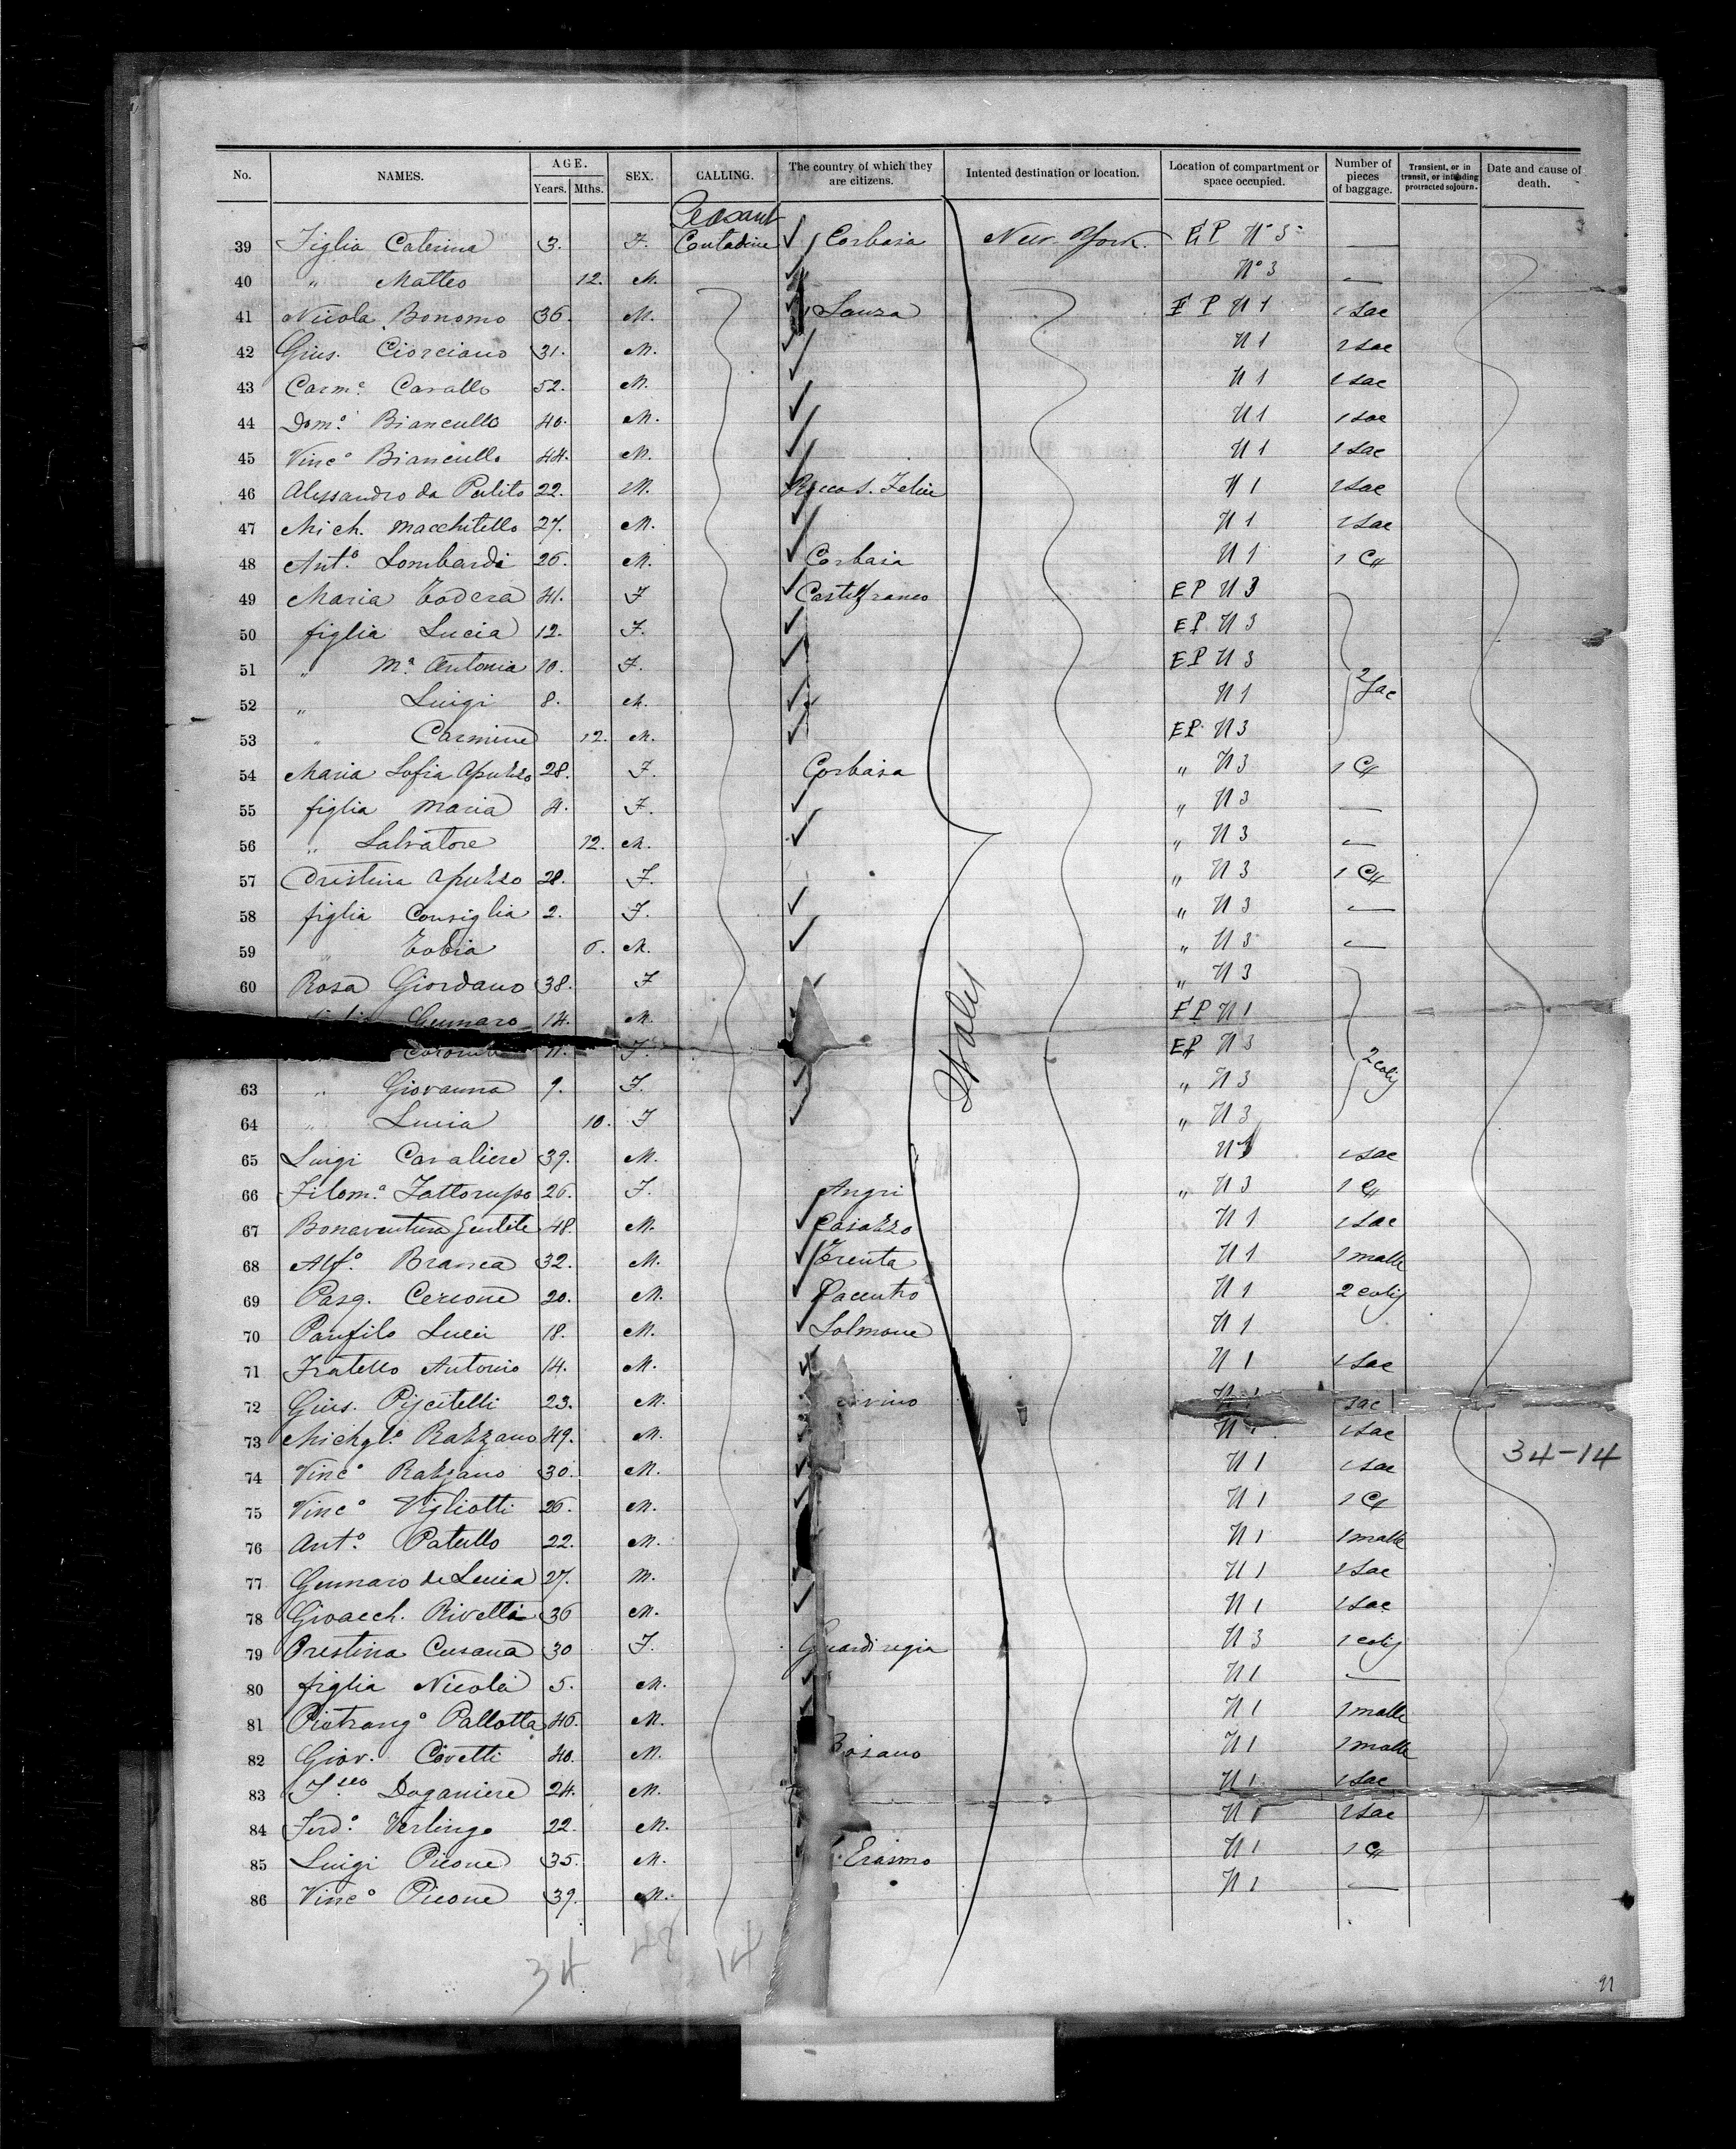 No. NAMES. AGE. Years. Mths. SEX. CALLING. The country of which they are citizens. Intented destination or location. Location of compartment or space occupied. Number of pieces of baggage. Transient, or in transit, or intending protracted sojourn. Date and cause of death.
Peasant
39 Figlia Caterina 3. F. Contadine Corbara New-York. EP No 3
40 " Matteo 12. M. No 3 —
41 Nicola Bonomo 36. M. EP N 1 1 Sac
42 Gius. Ciorciano 31. M. N 1 1 Sac
43 Carme. Cavallo 52. M. N 1 1 Sac
44 Domo. Biancullo 40. M. N 1 1 Sac
45 Vinco Biancullo 44. M. N 1 1 Sac
46 Alessandro da Polito 22. M. Rocca S. Felice N 1 1 Sac
47 Mich. Macchitello 27. M. N 1 1 Sac
48 Anto. Lombardi 26. M. Corbara N 1 1 C
49 Maria Todera 41. F Castelfranco EP N 3
50 figlia Lucia 12. F. EP N 3
51 " Ma. Antonia 10. F. EP N 3
52 " Luigi 8. M. N 1 2 Sac
53 " Carmine 12. M. EP N 3
54 Maria Sofia Apuzzo 28. F. Corbara " N 3 1 C
55 figlia Maria 4. F. " N 3 —
56 " Salvatore 12. M. " N 3 —
57 Cristina Apuzzo 28. F. " N 3 1 C
58 figlia Consiglia 2. F. " N 3 —
59 " Tobia 6. M. " N 3 —
60 Rosa Giordano 38. F " N 3
Gennaro 14. M. EP N 1
11. F. EP N 3
63 " Giovanna 9. F. " N 3 2 colis
64 " Lucia 10. F " N 3
Italy
65 Luigi Cavaliere 39. M. N 1 1 Sac
66 Filoma. Fattorupo 26. F. Angri " N 3 1 C
67 Bonaventura Gentile 48. M. Caiazzo N 1 1 Sac
68 Alfo. Branca 32. M. Trenta N 1 1 malle
69 Pasq. Cercone 20. M. Pacentro N 1 2 colis
70 Panfilo Lucci 18. M. Solmone N 1
71 Fratello Antonio 14. M. N 1 1 Sac
72 Gius. Piscitelli 23. M. N 1 Sac
73 Michglo. Razzano 49. M. N 1 1 Sac
34-14
74 Vinco Razzano 30. M. N 1 1 Sac
75 Vinco Vigliotti 26. M. N 1 1 C
76 Anto. Patullo 22. M. N 1 1 malle
77 Gennaro de Lucia 27. M. N 1 1 Sac
78 Gioacch. Rivelli 36 M. N 1 1 Sac
79 Prestina Cusana 30 F. Guardiregia N 3 1 colis
80 figlia Nicola 5. M. N 1 —
81 Pietrango Pallotta 46. M. N 1 1 malle
82 Giov. Civetti 40. M. Boiano N 1 1 malle
83 Fsco Doganiere 24. M. N 1 1 Sac
84 Ferdo. Verlingo 22. M. N 1 1 Sac
85 Luigi Picone 35. M. Erasmo N 1 1 C
86 Vinco Picone 39. M. N 1 —
34 48 14